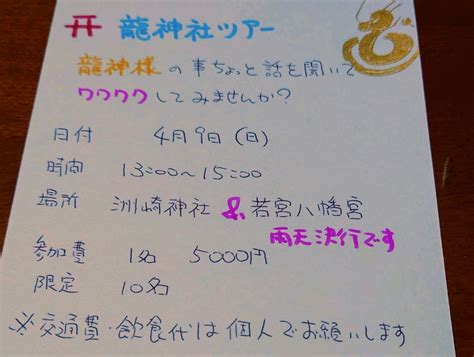 龍神社ツアー
龍神様の事ちょっと話を聞いて
ワクワクしてみませんか?
日付 4月9日(日)
時間 13:00〜15:00
場所 洲崎神社 & 若宮八幡宮
雨天決行です
参加費 1名 5000円
限定 10名
※交通費・飲食代は個人でお願いします